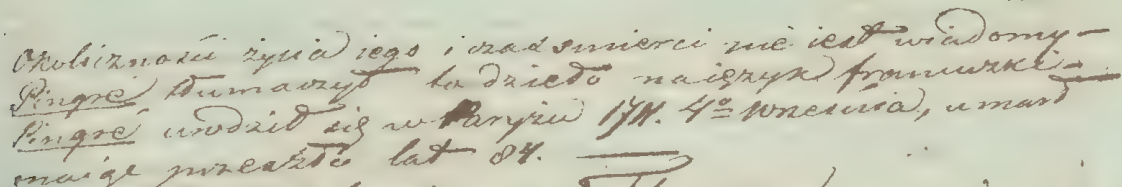 Okoliczności życia iego i czas smierci nie iest wiadomy –
Pingré tłumaczył to dzieło na ięzyk francuzki –
Pingré urodził się w Paryżu 1711. 4º wrzesnia, umarł
maiąc przeszło lat 84. —